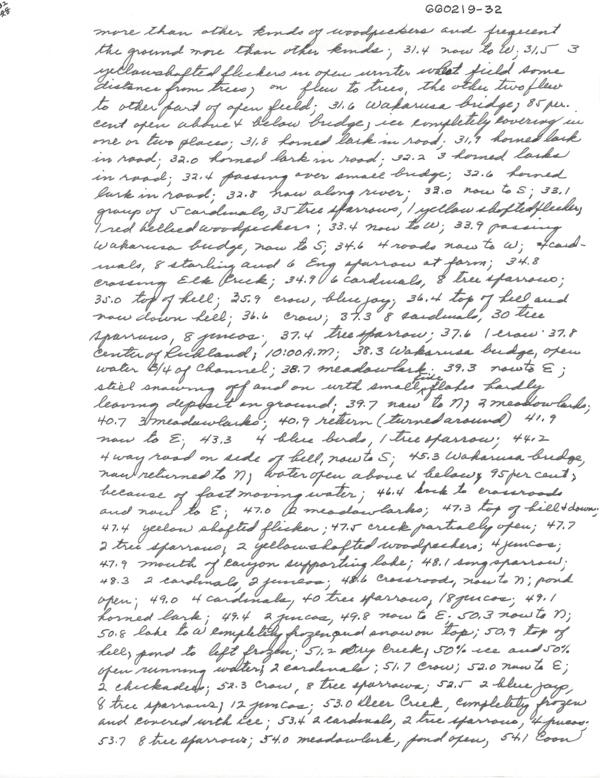 GG0219-32
more than other kinds of woodpeckers and frequent
the ground more than other kinds; 31.4 now to W; 31.5 3
yellowshafted flickers in open winter wheat field some
distance from trees; on flew to trees, the other two flew
to other part of open field; 31.6 Wakarusa bridge; 85 per.
cent open above & below bridge; ice completely covering in
one or two places; 31.8 horned lark in road; 31.9 horned lark
in road; 32.0 horned lark in road; 32.2 3 horned larks
in road; 32.4 passing over small bridge; 32.6 horned
lark in road; 32.8 now along river; 33.0 now to S; 33.1
group of 5 cardinals, 35 tree sparrows, 1 yellow shafted flicker,
1 red bellied woodpeckers; 33.4 now to W; 33.9 passing
Wakarusa bridge, now to S; 34.6 4 roads now to W; 4 card-
inals, 8 starling and 6 Eng sparrow at farm; 34.8
crossing Elk Creek; 34.9 6 cardinals, 8 tree sparrows;
35.0 top of hill; 35.9 crow, blue jay; 36.4 top of hill and
now down hill; 36.6 crow; 37.3 8 cardinals, 30 tree
sparrows, 8 juncos; 37.4 tree sparrow; 37.6 1 crow; 37.8
center of Richland; 10:00 A.M; 38.3 Wakarusa bridge, open
water 3/4 of channel; 38.7 meadowlark; 39.3 now to E;
still snowing off and on with small flakes hardly
leaving deposit on ground; 39.7 now to N; 2 meadowlarks;
40.7 3 meadowlarks; 40.9 return (turned around) 41.9
now to E; 43.3 4 blue birds, 1 tree sparrow; 44.2
4 way road on side of hill, now to S; 45.3 Wakarusa bridge,
now returned to N; water open above & below; 95 per cent;
because of fast moving water; 46.4 back to crossroads
and now to E; 47.0 2 meadowlarks; 47.3 top of hill & down;
47.4 yellow shafted flicker; 47.5 creek partially open; 47.7
2 tree sparrows, 2 yellowshafted woodpeckers; 4 juncos;
47.9 mouth of canyon supporting lake; 48.1 song sparrow;
48.3 2 cardinals, 2 juncos; 48.6 crossroad, now to N; pond
open; 49.0 4 cardinals, 40 tree sparrows, 18 juncos; 49.1
horned lark; 49.4 2 juncos, 49.8 now to E; 50.3 now to N;
50.8 lake to W completely frozen and snow on top; 50.9 top of
hill, pond to left frozen; 51.2 Dry Creek, 50% ice and 50%
open running water; 2 cardinals; 51.7 crow; 52.0 now to E;
2 chickadees; 52.3 crow, 8 tree sparrows; 52.5 2 blue jays,
8 tree sparrows, 12 juncos; 53.0 Deer Creek, completely frozen
and covered with ice; 53.4 2 cardinals, 2 tree sparrows, 4 juncos;
53.7 8 tree sparrows; 54.0 meadowlark, pond open, 54.1 Coon